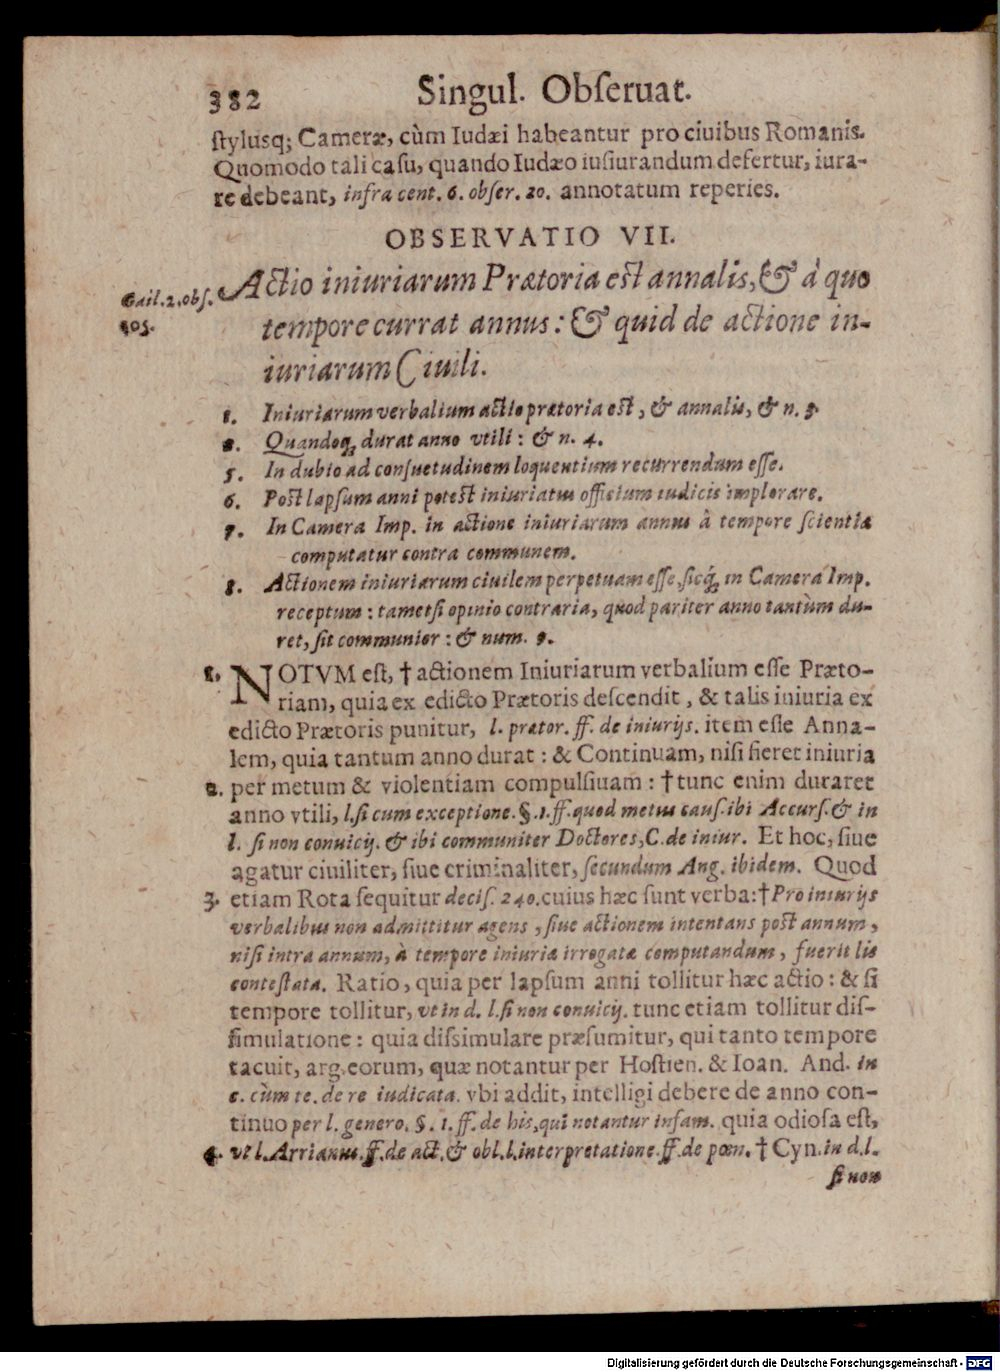 382 Singul. Obſeruat.
ſtylusq; Cameræ, cùm Iudæi habeantur pro ciuibus Romanis.
Quomodo tali caſu, quando Iudæo iuſiurandum defertur, iura-
re debeant, infra cent. 6. obſer. 20. annotatum reperies.
OBSERVATIO VII.
Gail. 2. obſ.
105.
Actio iniuriarum Prætoria eſt annalis, & à quo
tempore currat annus: & quid de actione in-
iuriarum Ciuili.
1. Iniuriarum verbalium actio prætoria eſt, & annalis, & n. 3.
2. Quandoq; durat anno vtili: & n. 4.
5. In dubio ad conſuetudinem loquentium recurrendum eſſe.
6. Poſt lapſum anni poteſt iniuriatus officium iudicis implorare.
7. In Camera Imp. in actione iniuriarum annus à tempore ſcientiæ
computatur contra communem.
8. Actionem iniuriarum ciuilem perpetuam eſſe, ſicq; in Camera Imp.
receptum: tametſi opinio contraria, quod pariter anno tantùm du-
ret, ſit communior: & num. 9.
1. NOTVM eſt, † actionem Iniuriarum verbalium eſſe Præto-
riam, quia ex edicto Prætoris deſcendit, & talis iniuria ex
edicto Prætoris punitur, l. prætor. ff. de iniurijs. item eſſe Anna-
lem, quia tantum anno durat: & Continuam, niſi fieret iniuria
2. per metum & violentiam compulſiuam: † tunc enim duraret
anno vtili, l. ſi cum exceptione. §. 1. ff. quod metus cauſ. ibi Accurſ. & in
l. ſi non conuicij. & ibi communiter Doctores, C. de iniur. Et hoc, ſiue
agatur ciuiliter, ſiue criminaliter, ſecundum Ang. ibidem. Quod
3. etiam Rota ſequitur deciſ. 240. cuius hæc ſunt verba: † Pro iniurijs
verbalibus non admittitur agens, ſiue actionem intentans poſt annum,
niſi intra annum, à tempore iniuriæ irrogatæ computandum, fuerit lis
conteſtata. Ratio, quia per lapſum anni tollitur hæc actio: & ſi
tempore tollitur, vt in d. l. ſi non conuicij. tunc etiam tollitur diſ-
ſimulatione: quia diſsimulare præſumitur, qui tanto tempore
tacuit, arg. eorum, quæ notantur per Hoſtien. & Ioan. And. in
c. cùm te. de re iudicata. vbi addit, intelligi debere de anno con-
tinuo per l. genero. §. 1. ff. de his, qui notantur infam. quia odioſa eſt,
4. vt l. Arrianus. ff. de act. & obl. l. interpretatione. ff. de pœn. † Cyn. in d. l.
ſi non
Digitalisierung gefördert durch die Deutsche Forschungsgemeinschaft - DFG